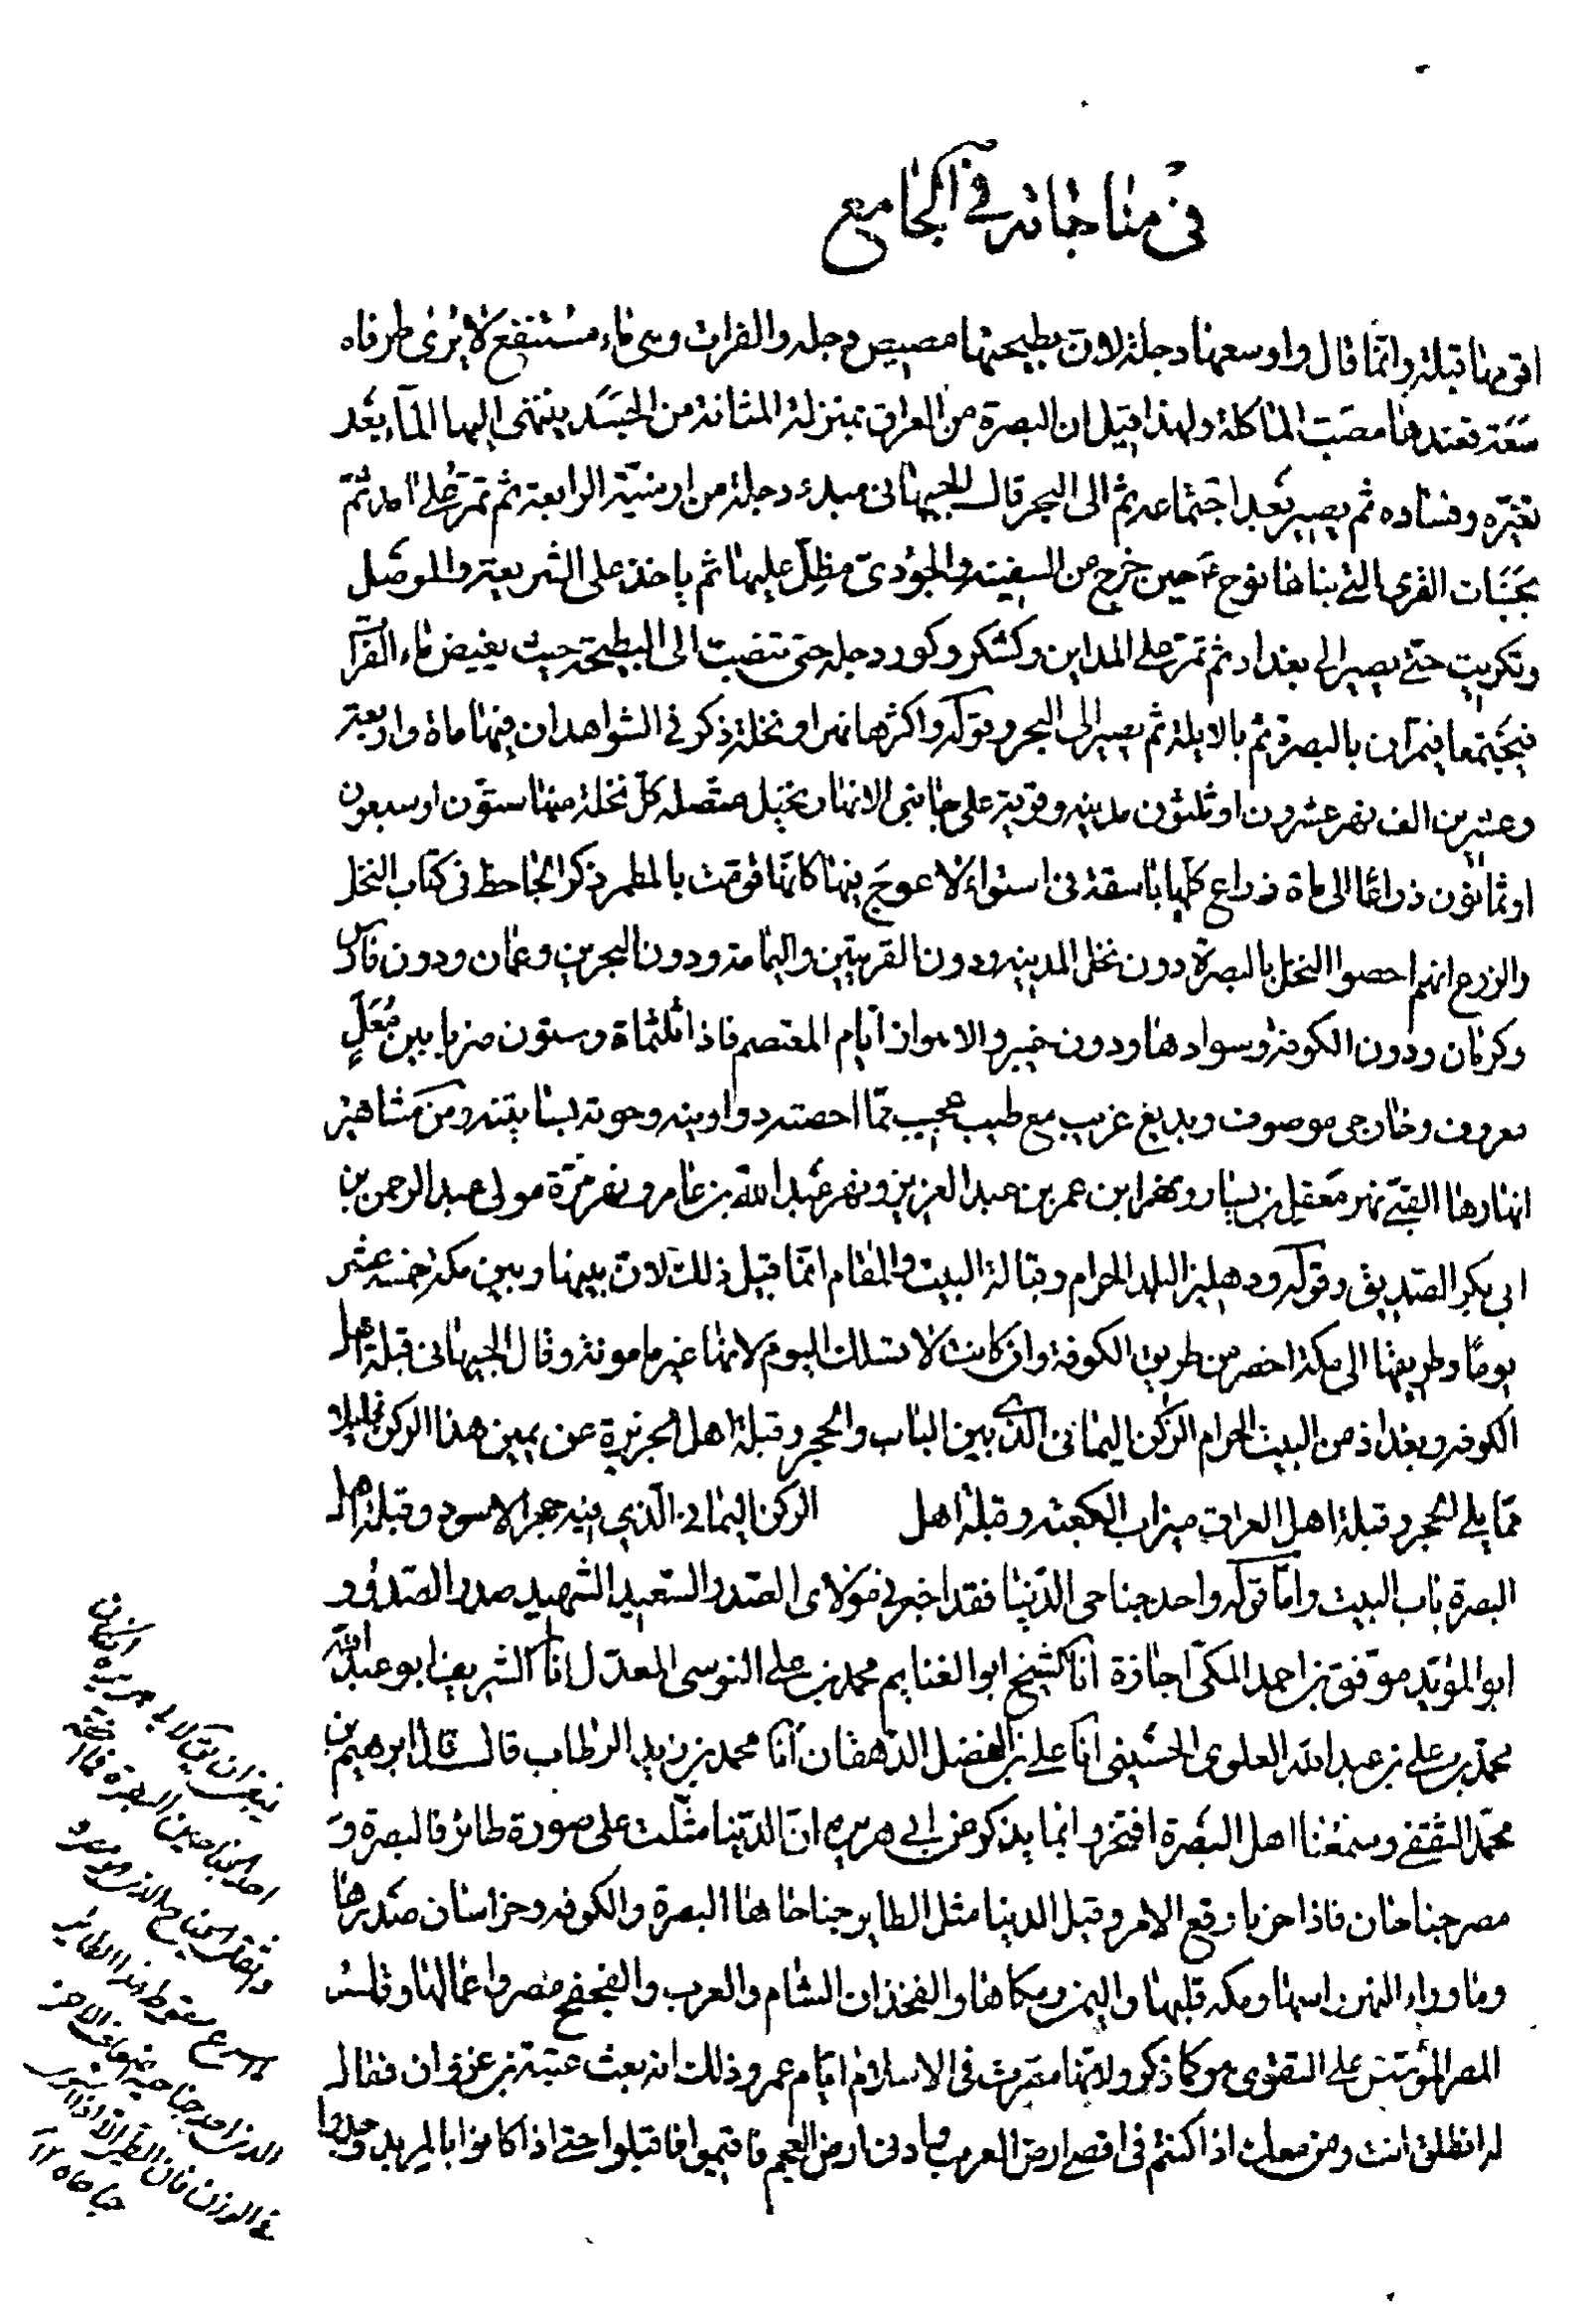 في مناجاته في الجامع
اقومها قبلة وانما قال واوسعها دجلة لان بطيحتها مصبص دجله والفرات وهى ماء مستنقع لا يرى طرفاه
سعة فعندها مصب الماء كله ولهذا قيل ان البصرة من العراق بمنزلة المثانة من الجسد ينتهى اليها الماء بعد
تغيره وفساده ثم يصير بعد اجتماعه ثم الى البحر قال الجيهانى مبدء دجلة من ارمنية الرابعة ثم تمر على امد ثم
بجنبات القرى التى بناها نوح ع م حين خرج من السفينة والجودى مظل عليها ثم ياخذ على الشريعة والموصل
وتكريت حتى يصير الى بغداد ثم تمر على المداين وكشكر وكور دجله حتى تنصب الى البطيحة حيث يغيض ماء الفرات
فيجتمعا فيمران بالبصرة ثم بالابلة ثم يصير الى البحر وقوله واكثرها نهرا ونخلة ذكر في الشواهد ان فيها ماة واربعة
وعشرين الف نهر عشرون او ثلثون مدينه وقرية على جانبى الانهار نخيل متصله كل نخلة منها ستون او سبعون
او ثمانون ذراعا الى ماة ذراع كلها باسقة فى استواء لا عوج فيها كانها قومت بالمطمر ذكر الجاحظ فى كتاب النخل
والزرع انهم احصوا النخل بالبصرة دون نخل المدينه ودون القريتين واليمامة ودون البحرين وعمان ودون فارس
وكرمان ودون الكوفة وسوادها ودون خيبر والاهواز ايام المعتصم فاذا ثلثماة وستون ضربا بين معل
معروف وخارجى موصوف وبديع غريب مع طيب عجيب مما احصته دواوينه وحوته بساتينه ومن مشاهير
انهارها القى نهر معقل بن يسار ونهر ابن عمر بن عبد العزيز ونهر عبد الله بن عامر ونهر مرة مولى عبد الرحمن بن
ابى بكر الصديق وقوله ودهليز البلد الحرام وقبالة البيت والمقام انما قيل ذلك لان بينها وبين مكة خمسه عشر
يوما وطريقها الى مكة اخصر من طريق الكوفة وان كانت لا تسلك اليوم لانها غير مامونة وقال الجيهانى قبلة اهل
الكوفه وبغداذ من البيت الحرام الركن اليمانى الذى بين الباب والحجر وقبلة اهل الجزيرة عن يمين هذا الركن قليلا
مما يلى الحجر وقبلة اهل العراق ميزاب الكعبة وقبلة اهل الركن اليمانى الذى فيه حجر الاسود وقبلة اهل
البصرة باب البيت واما قوله واحد جناحى الدنيا فقد اخبرنى مولاى الصدر السعيد الشهيد صدر الصدور
ابو المؤيد موفق بن احمد المكى اجازة انا الشيخ ابو الغنايم محمد بن على النوسى المعدل انا الشريف ابو عبد الله
محمد بن على بن عبد الله العلوى الحسينى انا على بن الفضل الدهقان انا محمد بن زيد الرطاب قال قال ابرهيم بن
محمد الثقفى وسمعنا اهل البصرة افتخروا انما يذكر عن ابى هريره ان الدنيا مثلت على صورة طائر فالبصرة و
مصر جناحان فاذا خربا وقع الامر وقيل الدنيا مثل الطاير جناحاها البصرة والكوفه وخراسان صدرها
وما وراء النهر راسها ومكه قلبها واليمن ومكاها والفخذان الشام والعرب والفجفح مصر واعمالها وقلت
المصر المؤسس على التقوى هو كما ذكر ولانها مصرت فى الاسلام ايام عمر وذلك انه بعث عتبة بن غزوان فقال
له انطلق انت ومن معك اذا كنتم فى اقصى ارض العرب وادنى ارض العجم فاقيموا فاقبلوا حتى اذا كانوا بالمربد وجدوا